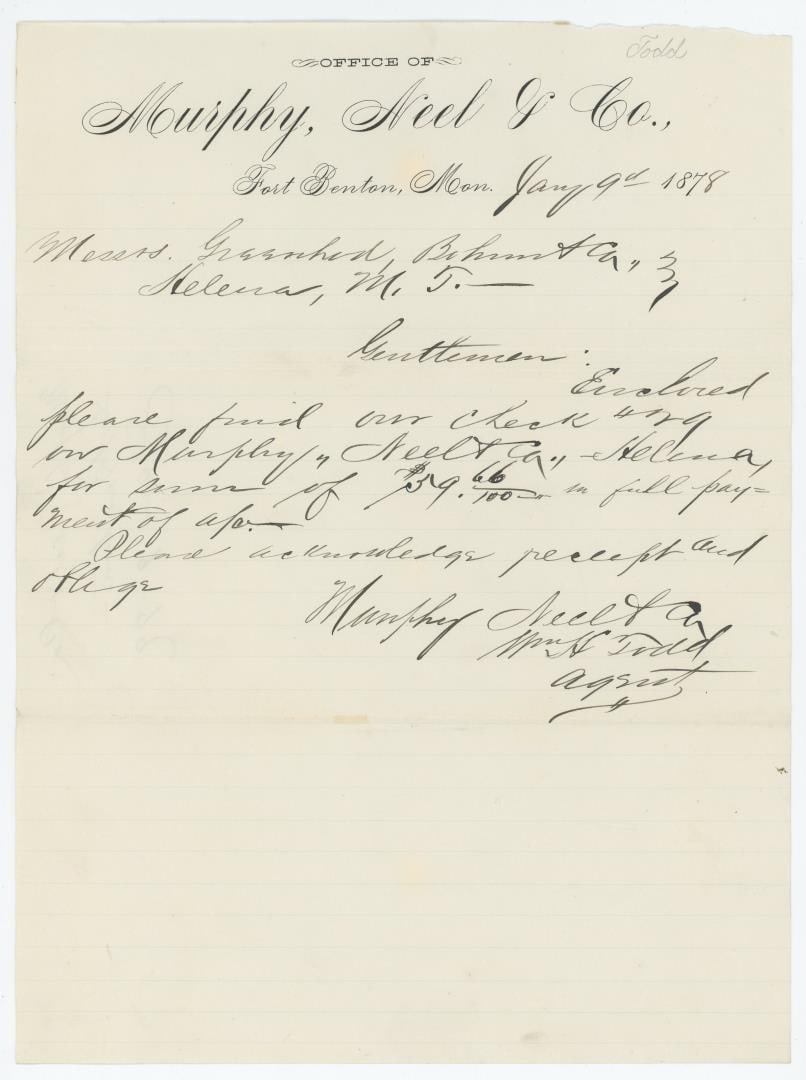 Todd
OFFICE OF
Murphy, Neel & Co.,
Fort Benton, Mon. Jany 9d 1878
Messrs. Greenhod, Bohm & Co,,
Helena, M. T. —
Gentlemen :
Enclosed
please find our check # 29
on Murphy,, Neel & Co,, - Helena,
for sum of $59. 66/100 — in full pay=
ment of a/c. —
Please acknowledge receipt and
oblige
Murphy Neel & Co
Wm H Todd
agent